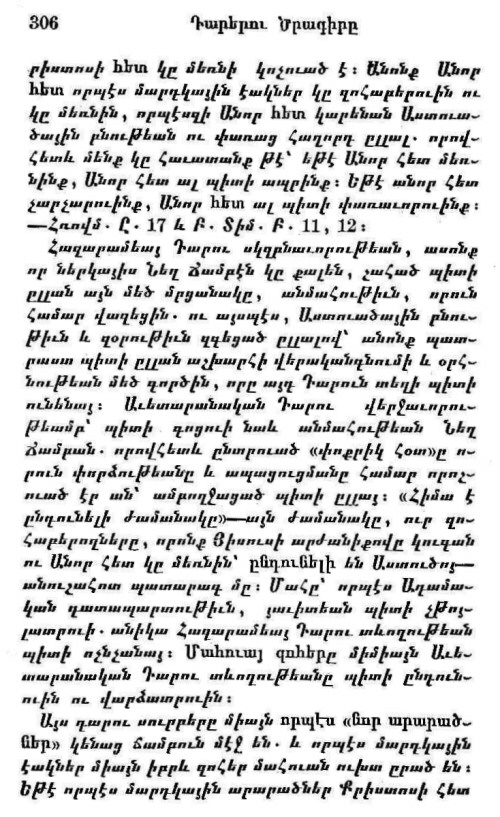 306 Դարերու Ծրագիրը
րիստոսի հետ կը մեռնի կոչուած է։ Անոնք Անոր
հետ որպէս մարդկային էակներ կը զոհաբերուին ու
կը մեռնին, որպէսզի Անոր հետ կարենան Աստուա-
ծային բնութեան ու փառաց Հաղորդ ըլլալ. որով-
հետև մենք կը Հաւատանք թէ՝ եթէ Անոր Հետ մեռ-
նինք, Անոր Հետ ալ պիտի ապրինք։ Եթէ անոր Հետ
չարչարուինք, Անոր հետ ալ պիտի փառաւորուինք։
—Հռովմ. Ը. 17 և Բ. Տիմ. Բ. 11, 12։
Հազարամեայ Դարու սկզբնաւորութեան, ասոնք
որ ներկայիս Նեղ Ճամբէն կը քալեն, շահած պիտի
ըլլան այն մեծ մրցանակը, անմահութիւն, որուն
Համար վազեցին. ու այսպէս, Աստուածային բնու-
թիւն և զօրութիւն զգեցած ըլլալով՝ անոնք պատ-
րաստ պիտի ըլլան աշխարհի վերականգնումի և օրհ-
նութեան մեծ գործին, որը այդ Դարուն տեղի պիտի
ունենայ։ Աւետարանական Դարու վերջաւորու-
թեամբ՝ պիտի գոցուի նաև անմահութեան Նեղ
Ճամբան. որովհետև ընտրուած «փոքրիկ հօտ»ը ո-
րուն փորձութեանը և ապացուցմանը Համար որոշ-
ուած էր ան՝ ամբողջացած պիտի ըլլայ։ «Հիմա է
ընդունելի ժամանակը»—այն ժամանակը, ուր զո-
հաբերողները, որոնք Յիսուսի արժանիքովը կուգան
ու Անոր Հետ կը մեռնին՝ ընդունելի են Աստուծոյ—
անուշահոտ պատարագ մը։ Մահը՝ որպէս Ադամա-
կան դատապարտութիւն, յաւիտեան պիտի չթոյ-
լատրուի. անիկա Հազարամեայ Դարու տևողութեան
պիտի ոչնչանայ։ Մահուայ զոհերը միմիայն Աւե-
տարանական Դարու տևողութեանը պիտի ընդուն-
ուին ու վարձատրուին։
Այս դարու սուրբերը միայն որպէս «նոր արարած-
ներ» կենաց ճամբուն մէջ են. և որպէս մարդկային
էակներ միայն իբրև զոհեր մահուան ուխտ ըրած են։
Եթէ որպէս մարդկային արարածներ Քրիստոսի Հետ